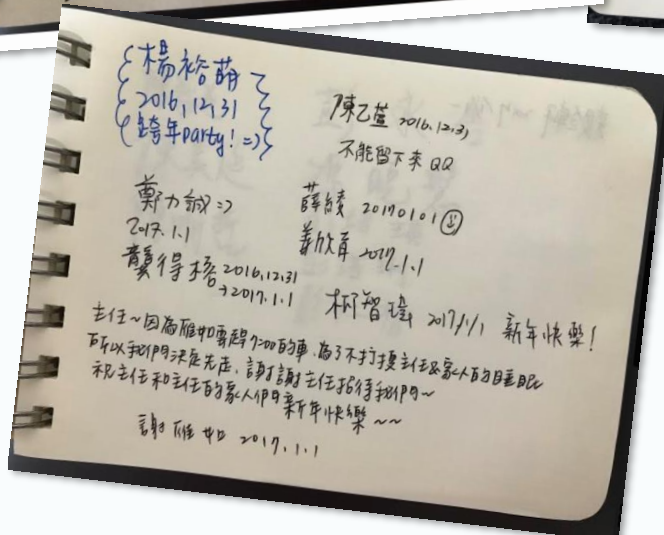 楊裕萌
2016,12,31
跨年party! =)
陳乙萱 2016.12.31
不能留下來QQ
鄭力誠=)
2017.1.1
薛綾 20170101
姜欣育 2017.1.1
龔得榕 2016.12.31
→2017.1.1
柯智瑋 2017/1/1 新年快樂!
主任~因為雁如要趕7:00的車,為了不打擾主任&家人的睡眠
所以我們決定先走,謝謝主任招待我們~
祝主任和主任的家人們新年快樂~~
謝雁如 2017.1.1